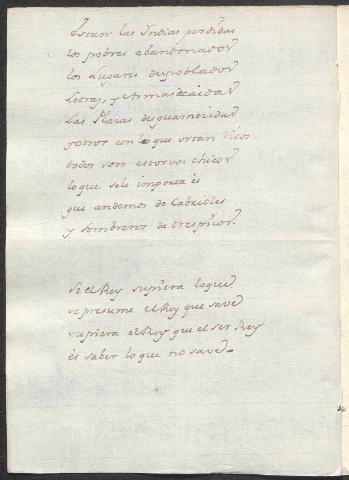 Estan las Yndias perdidas
los pobres abandonados
los Lugares despoblados
Letras, y Armas caidas
Las Plazas desguarnezidas
y otros con lo que urtan Ricos
todos son estorvos chicos
lo que solo importa és
que andemos de Cabriolés
y sombreros de tres picos.
Si el Rey supiera lo que
se presume el Rey que save
supiera el Rey que el ser Rey
és saber lo que no save